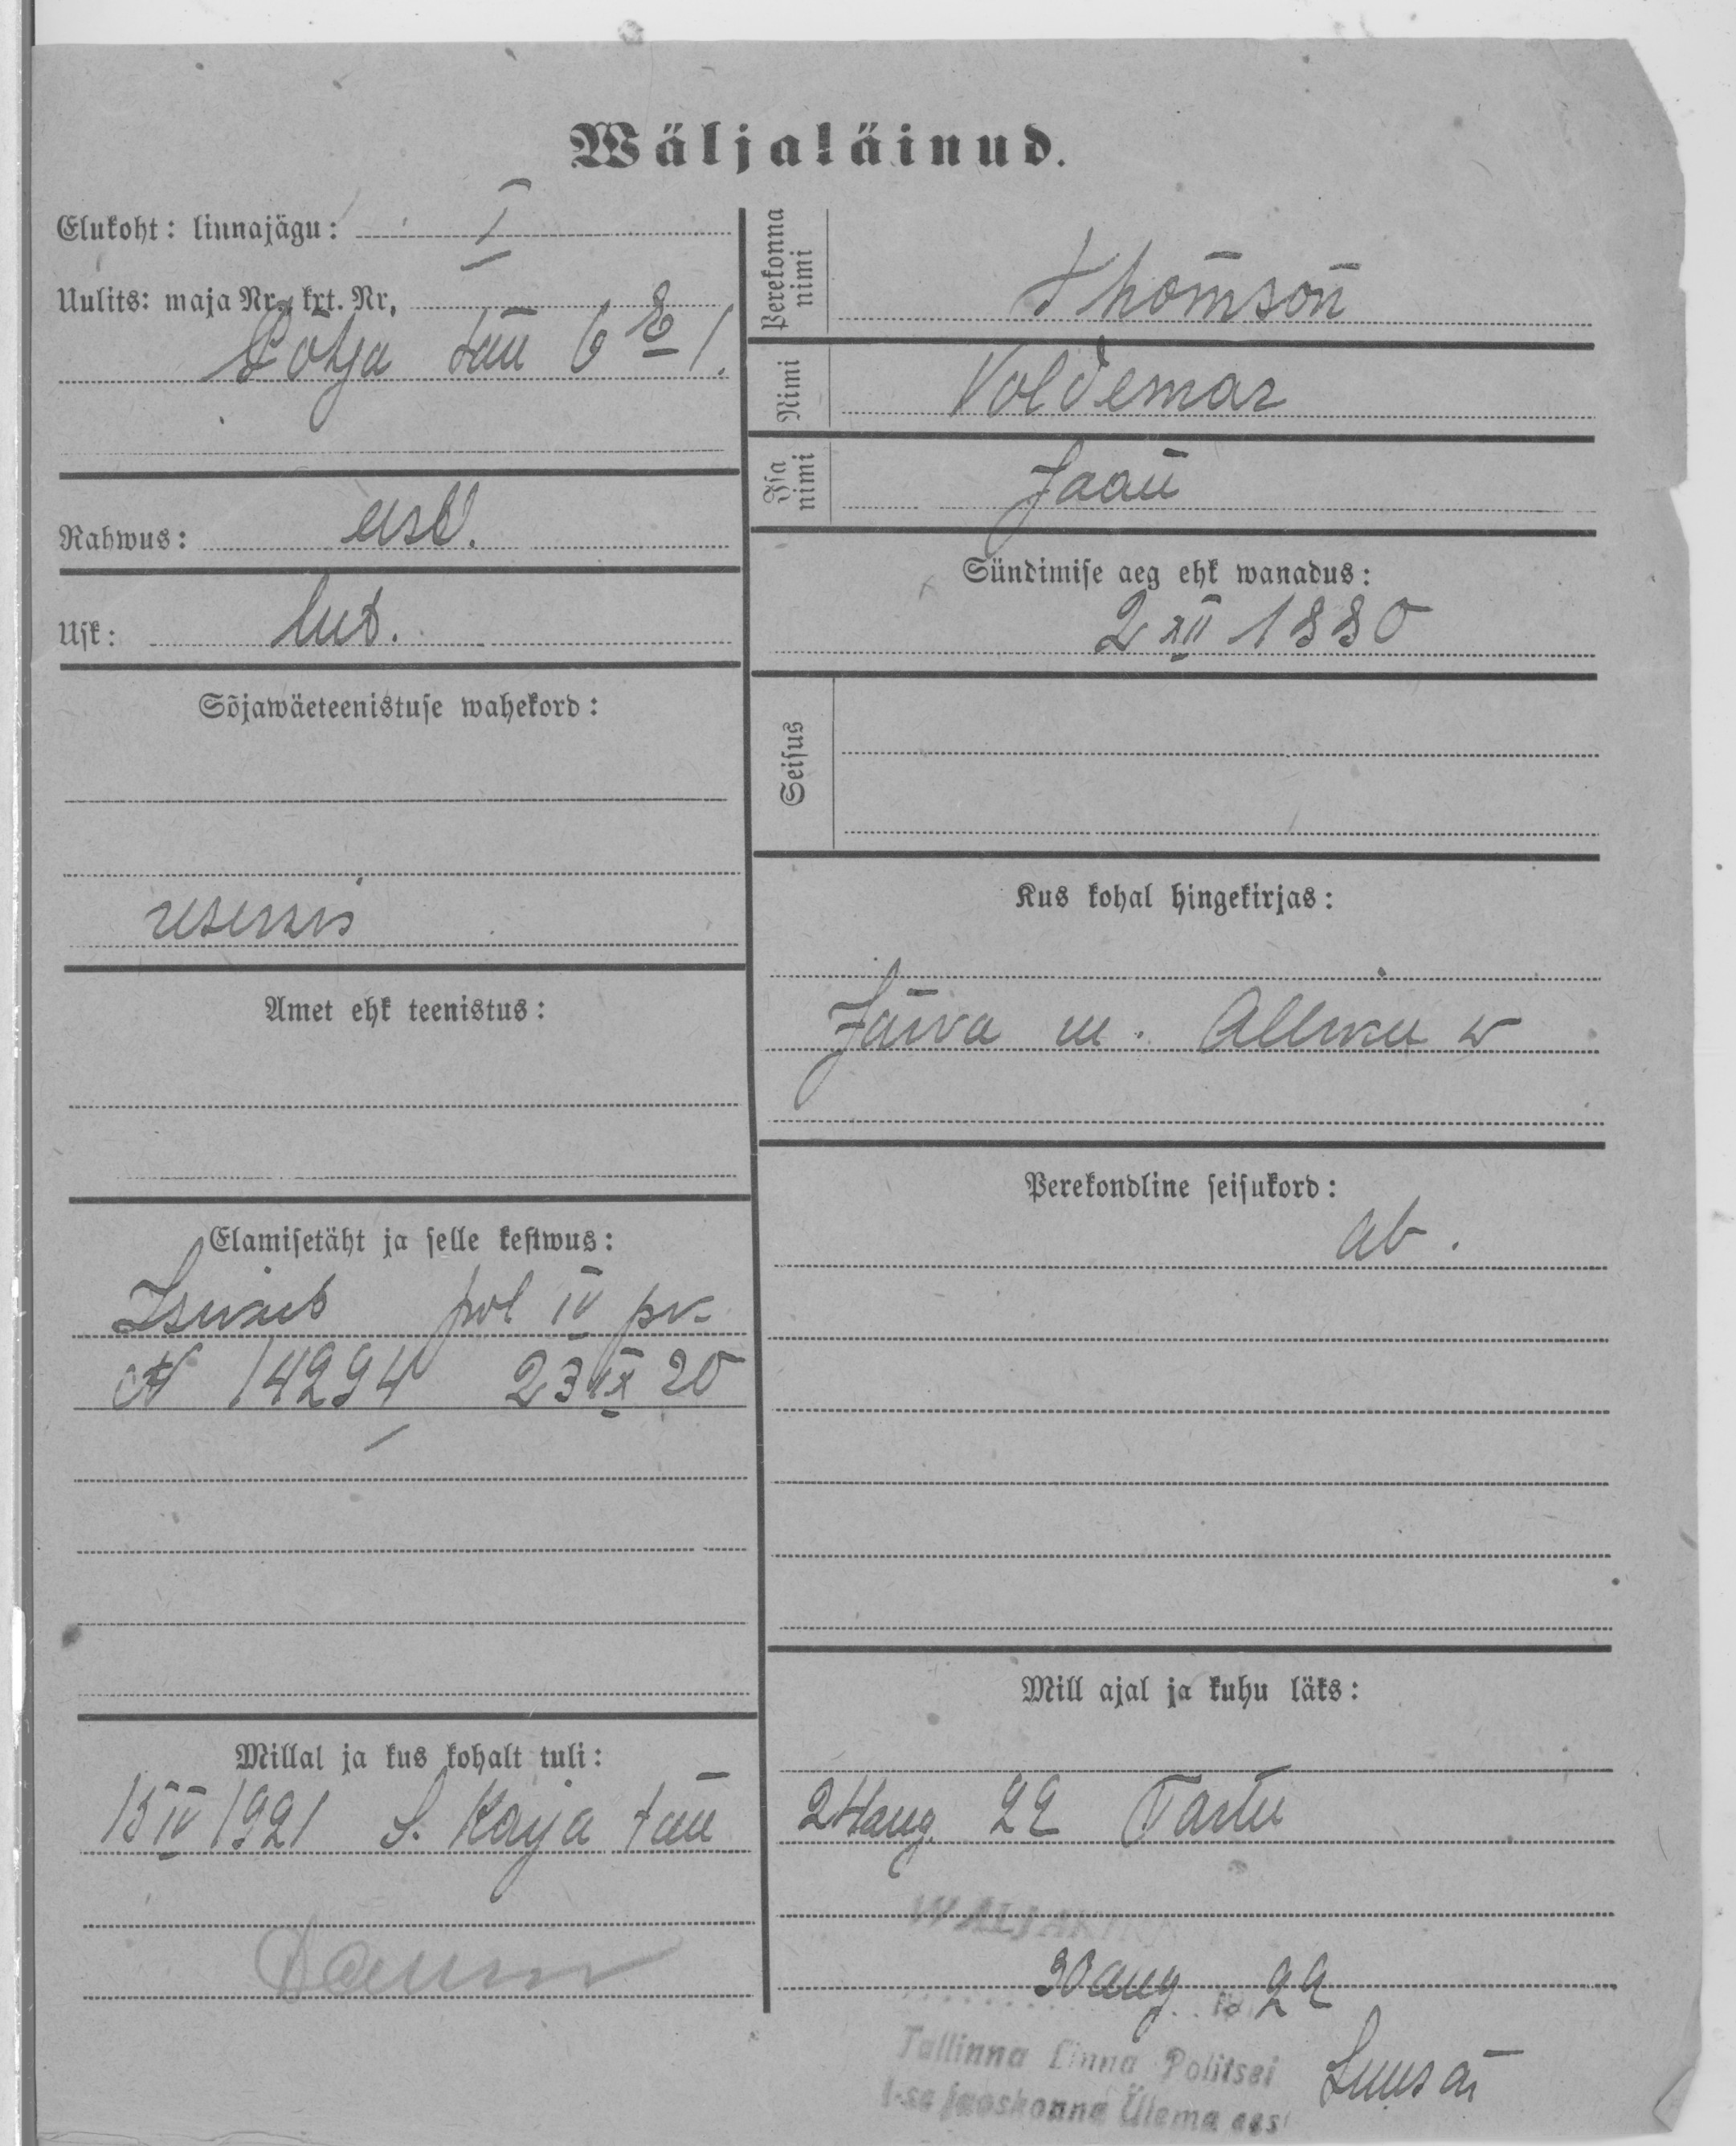 Wäljaläinud.
Elukoht: linnajägu: I
Uulits: maja Nr., krt. Nr.
Lõhja tän 6 1.
Rahwus: eest.
Usk: lut.
Sõjawäeteenistuse wahekord:
reserwis
Amet ehk teenistus:
Elamisetäht ja selle kestwus:
Isikut pol IV
N 14294 23 IX 20
Millal ja kus kohalt tuli:
15 IV 1921 S. Karja tän
Perekonna nimi
Thomson
Nimi
Voldemar
Isa nimi
Jaan
Sündimise aeg ehk wanadus:
2 XII 1880
Seisus
Kus kohal hingekirjas:
Järva m. Alliku w
Perekondline seisukord:
ab.
Mill ajal ja kuhu läks:
24 aug. 22 Tartu
WALJAKIRJ
30 aug. 22
Tallinna Linna Politsei
I-se jaoskonna Ülema